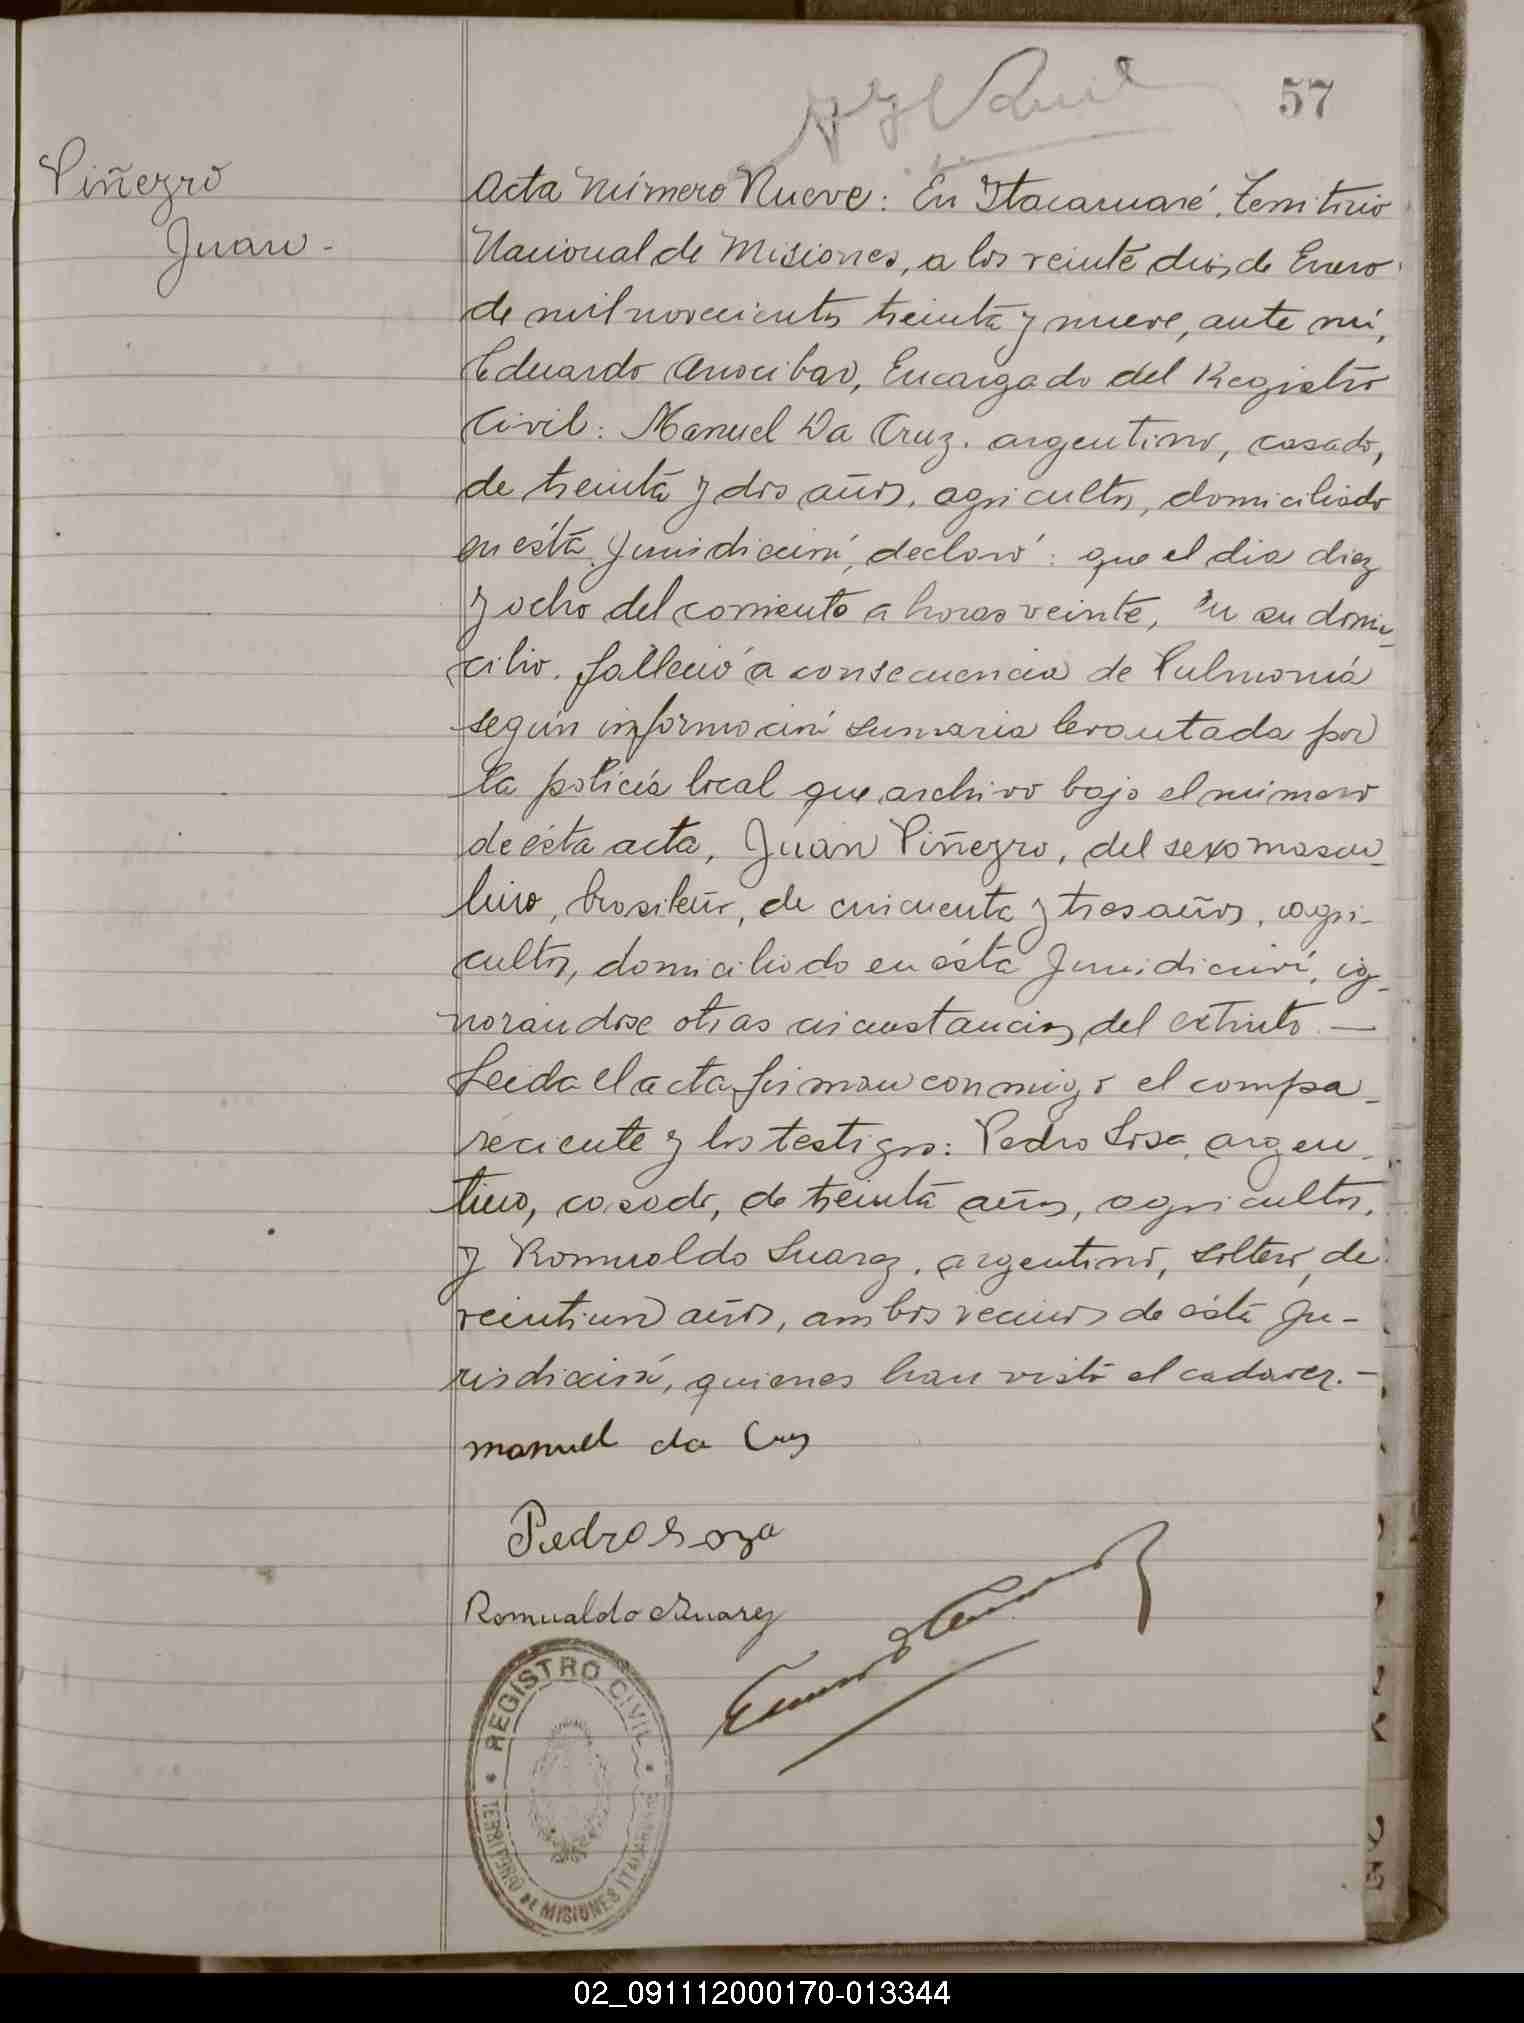 57
Piñeyro
Juan -
Acta Número Nueve: En Itacaruaré, Territorio
Nacional de Misiones, a los veinte dias de Enero
de mil novecientos treinta y nueve, ante mi,
Eduardo Encargado del Registro
Civil: Manuel Da Cruz. argentino, casado,
de treinta y dos años, agricultor, domiciliado
en ésta Jurisdicción, declaró: que el dia diez
y ocho del corriente a horas veinte, en su domi-
cilio. falleció a consecuencia de Pulmonía
según información sumaria levantada por
la policía local que archivo bajo el número
de ésta acta, Juan Piñeyro, del sexo mascu-
lino, brasileño, de cincuenta y tres años, agri-
cultor, domiciliado en ésta Jurisdicción, ig-
norandose otras circunstancias del extinto. —
Leida el acta firman conmigo el compa-
reciente y los testigos: Pedro Sosa, argen-
tino, casado, de treinta años, agricultor,
y Romualdo Suarez, argentino, soltero, de
veintiun años, ambos vecinos de ésta Ju-
risdicción, quienes han visto el cadaver. -
manuel da Cruz
Pedro Soza
Romualdo Suarez
REGISTRO CIVIL
TERRITORIO DE MISIONES ITACARUARE
02_091112000170-013344